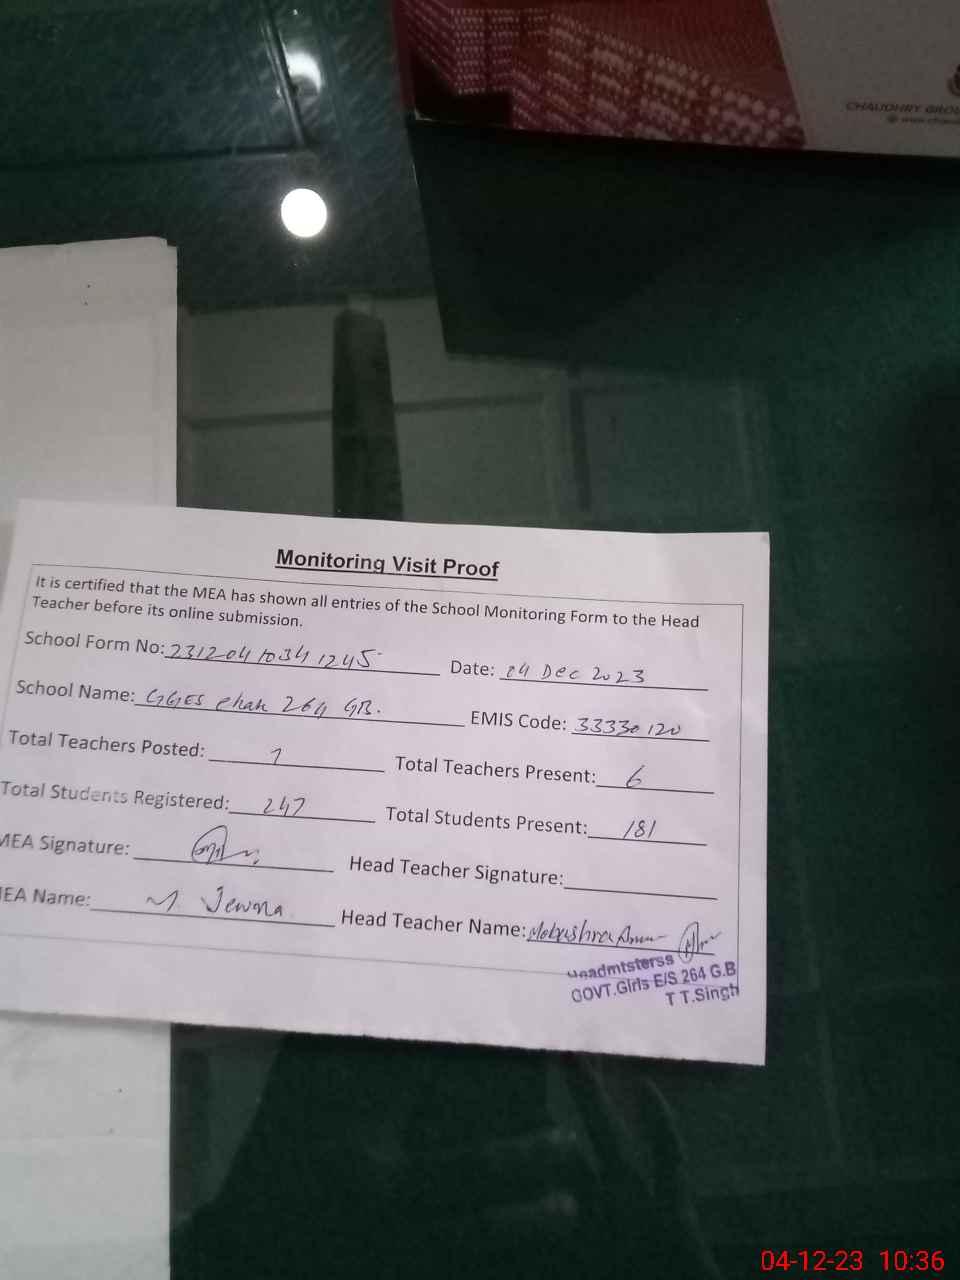 CHAUDHRY GROU
Monitoring Visit Proof
It is certified that the MEA has shown all entries of the School Monitoring Form to the Head
Teacher before its online submission.
School Form No: 2312041034 1245 Date: 04 Dec 2023
School Name: GGES chak 264 GB. EMIS Code: 33330120
Total Teachers Posted: 7 Total Teachers Present: 6
Total Students Registered: 247 Total Students Present: 181
MEA Signature: Head Teacher Signature:
EA Name: M. Head Teacher Name:
Headmtsterss
GOVT.Girls E/S 264 G.B
T T.Singh
04-12-23 10:36